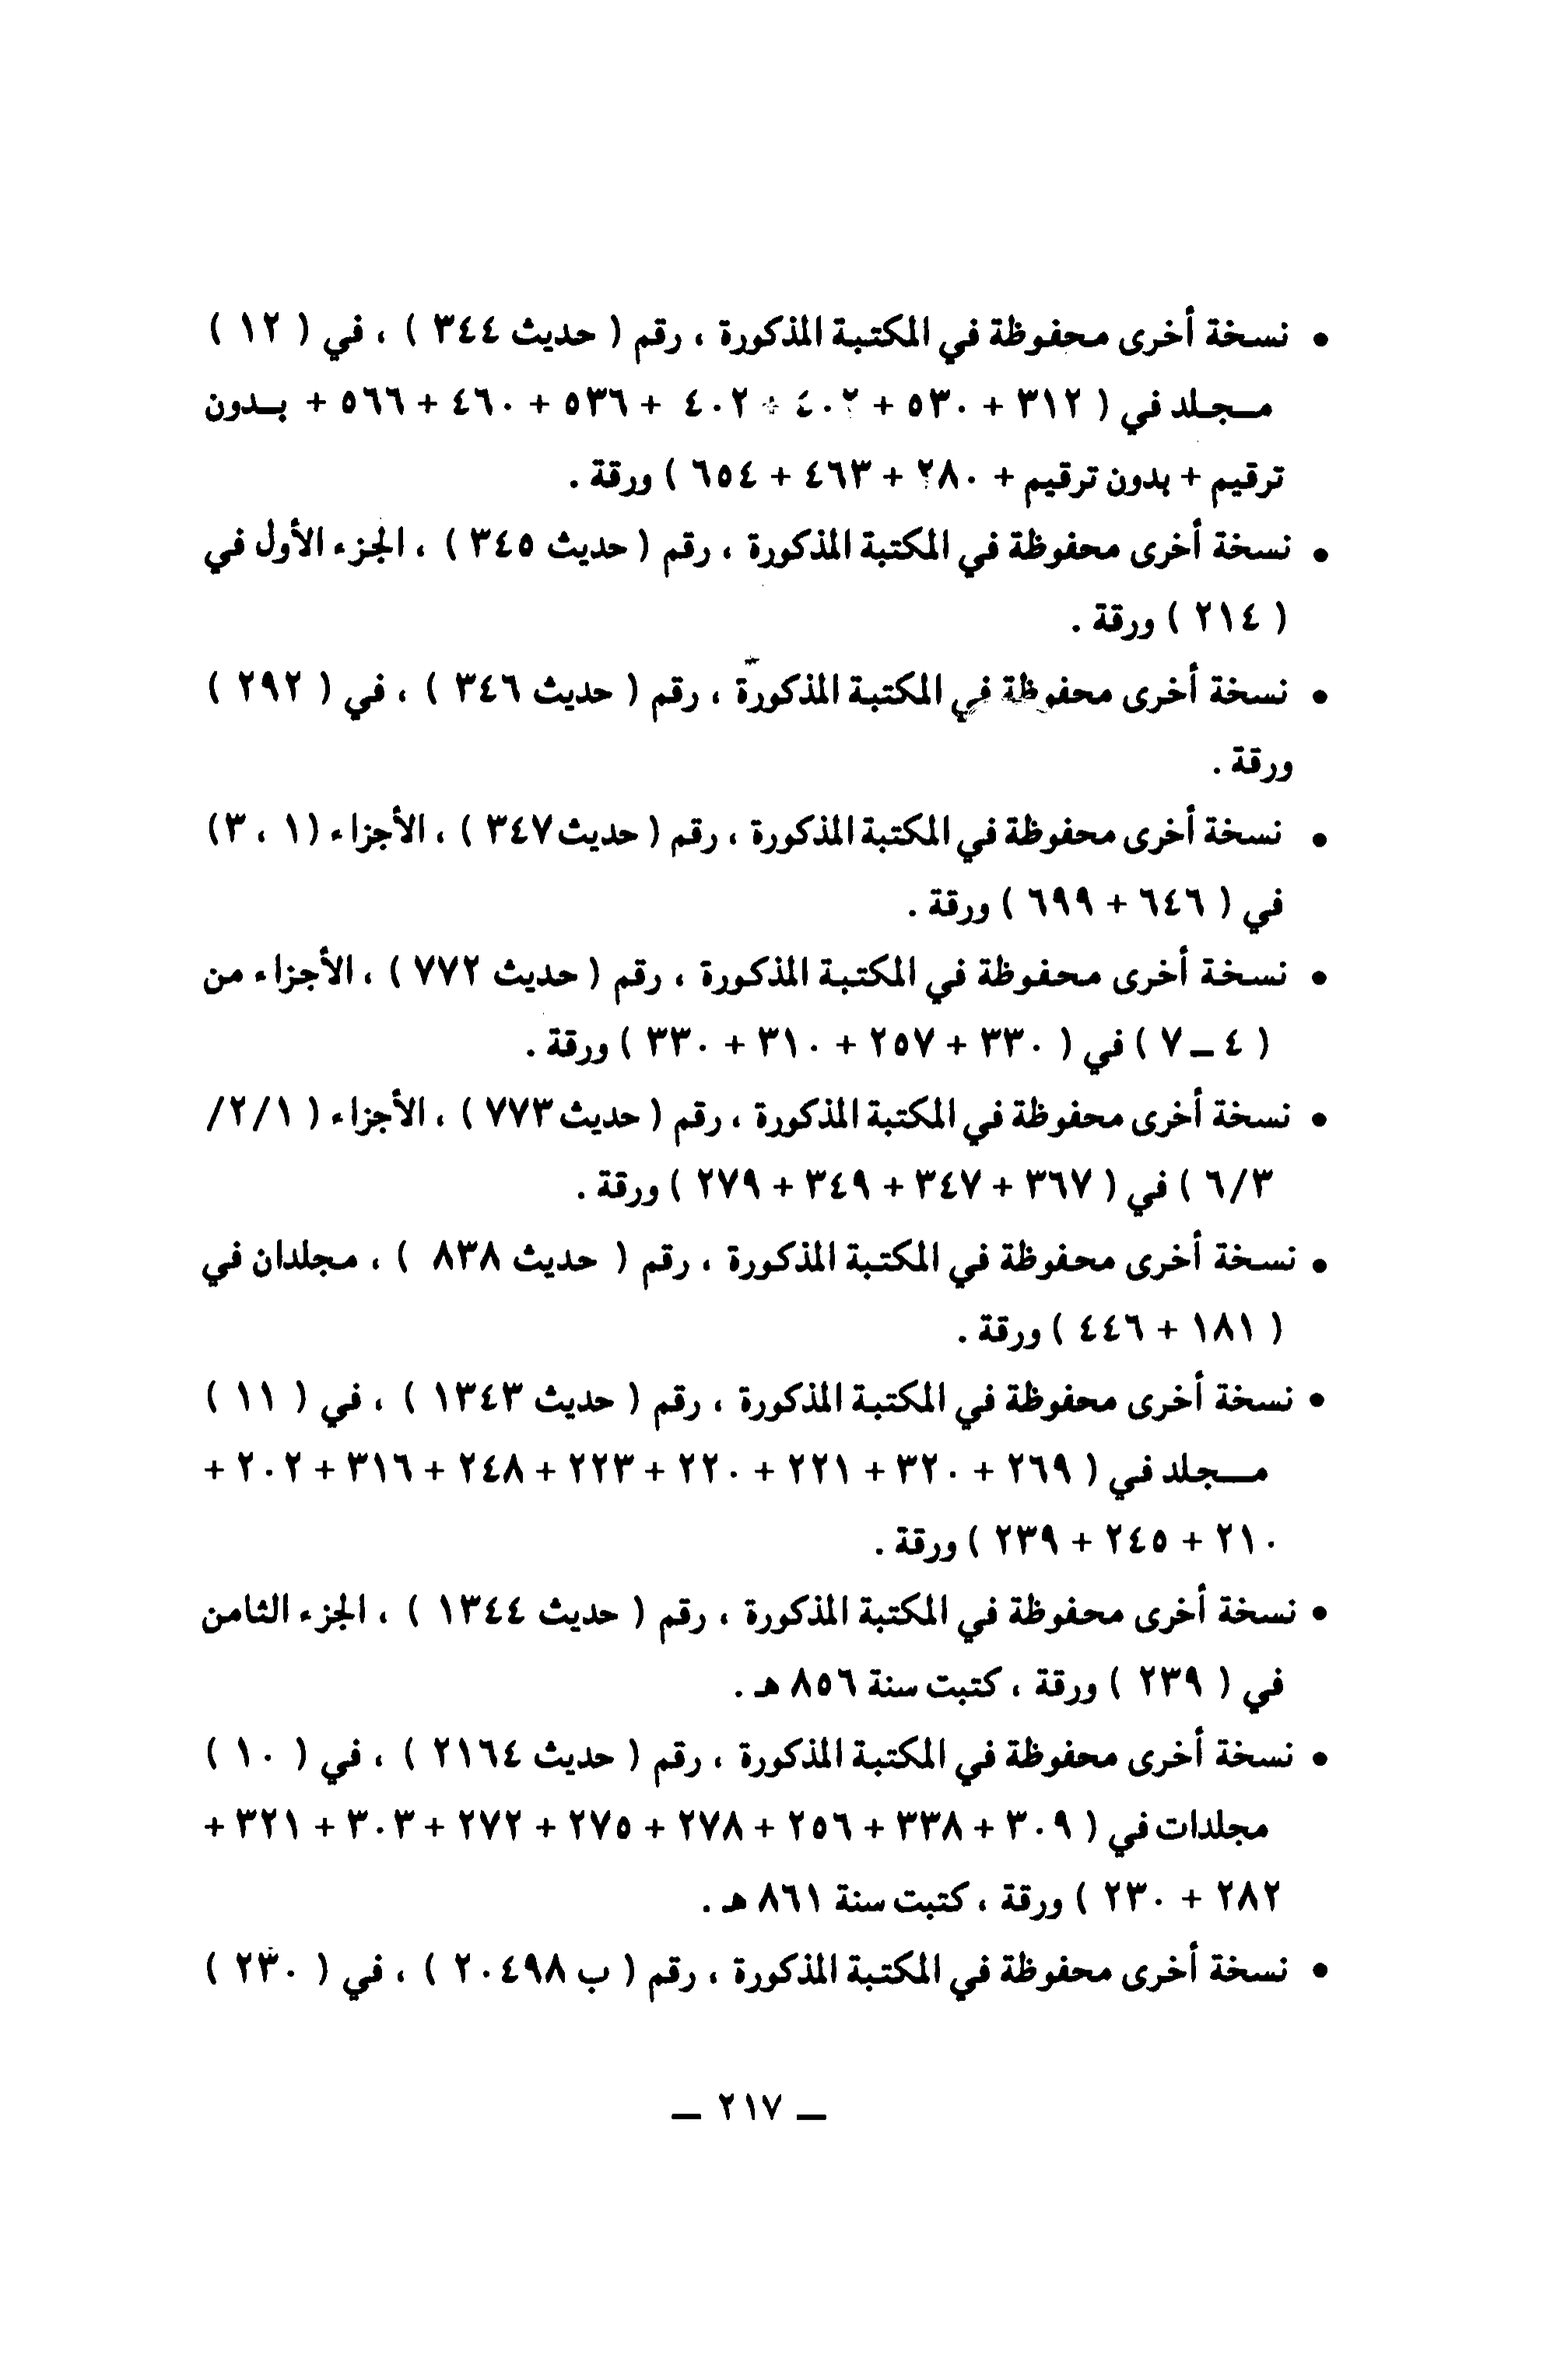 • نسخة أخرى محفوظة في المكتبة المذكورة ، رقم ( حديث ٣٤٤ ) ، في ( ١٢ )
مـجـلد في ( ٣١٢ + ٥٣٠ + ٤٠٢ + ٤٠٢ + ٥٣٦ + ٤٦٠ + ٥٦٦ + بـدون
ترقيم + بدون ترقيم + ٢٨٠ + ٤٦٣ + ٦٥٤ ) ورقة .
• نسخة أخرى محفوظة في المكتبة المذكورة ، رقم ( حديث ٣٤٥ ) ، الجزء الأول في
( ٢١٤ ) ورقة .
• نسخة أخرى محفوظة في المكتبة المذكورة ، رقم ( حديث ٣٤٦ ) ، في ( ٢٩٢ )
ورقة .
• نسخة أخرى محفوظة في المكتبة المذكورة ، رقم ( حديث ٣٤٧ ) ، الأجزاء (١ ، ٣)
في ( ٦٤٦ + ٦٩٩ ) ورقة .
• نسخة أخرى محفوظة في المكتبة المذكورة ، رقم ( حديث ٧٧٢ ) ، الأجزاء من
( ٤ ــ ٧ ) في ( ٣٣٠ + ٢٥٧ + ٣١٠ + ٣٣٠ ) ورقة .
• نسخة أخرى محفوظة في المكتبة المذكورة ، رقم ( حديث ٧٧٣ ) ، الأجزاء ( ١/ ٢/
٦/٣ ) في ( ٣٦٧ + ٣٤٧ + ٣٤٩ + ٢٧٩ ) ورقة .
• نسخة أخرى محفوظة في المكتبة المذكورة ، رقم ( حديث ٨٣٨ ) ، مجلدان في
( ١٨١ + ٤٤٦ ) ورقة .
• نسخة أخرى محفوظة في المكتبة المذكورة ، رقم ( حديث ١٣٤٣ ) ، في ( ١١ )
مــجلد في ( ٢٦٩ + ٣٢٠ + ٢٢١ + ٢٢٠ + ٢٢٣ + ٢٤٨ + ٣١٦ + ٢٠٢ +
٢١٠ + ٢٤٥ + ٢٣٩ ) ورقة .
• نسخة أخرى محفوظة في المكتبة المذكورة ، رقم ( حديث ١٣٤٤ ) ، الجزء الثامن
في ( ٢٣٩ ) ورقة ، كتبت سنة ٨٥٦ هـ .
• نسخة أخرى محفوظة في المكتبة المذكورة ، رقم ( حديث ٢١٦٤ ) ، في ( ١٠ )
مجلدات في ( ٣٠٩ + ٣٣٨ + ٢٥٦ + ٢٧٨ + ٢٧٥ + ٢٧٢ + ٣٠٣ + ٣٢١ +
٢٨٢ + ٢٣٠ ) ورقة ، كتبت سنة ٨٦١ هـ .
• نسخة أخرى محفوظة في المكتبة المذكورة ، رقم ( ب ٢٠٤٩٨ ) ، في ( ٢٣٠ )
ــ ٢١٧ ــ